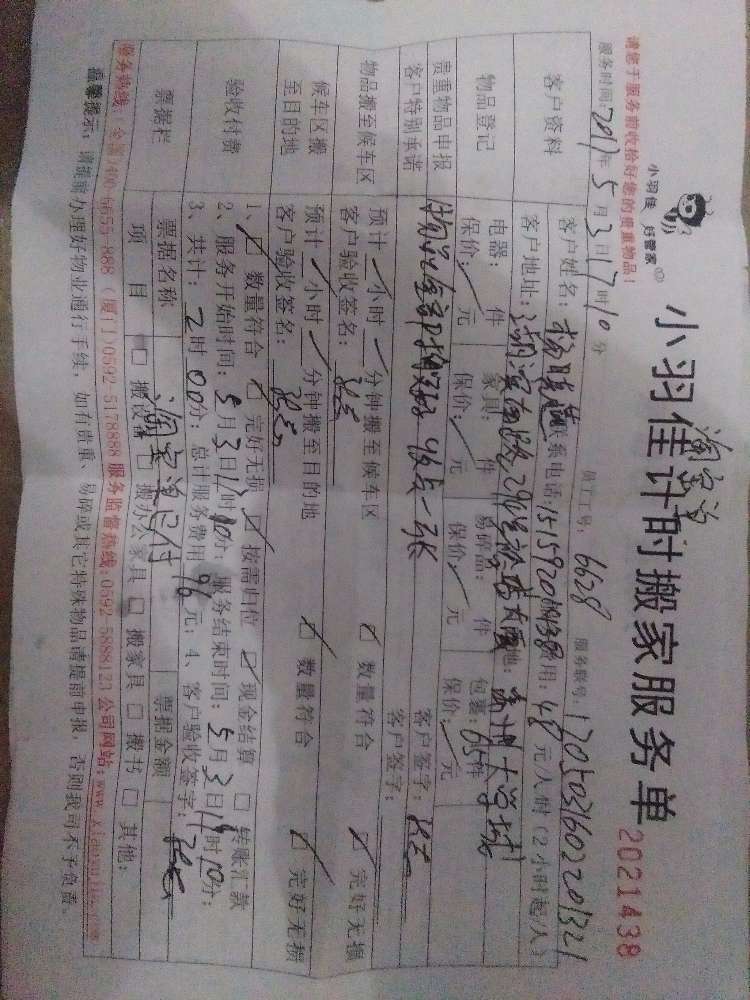 小羽佳 好管家
小羽佳计时搬家服务单 2021438
淘宝单
请您于服务前收拾好您的贵重物品！
员工工号：6658 服务联号：1705031602201321
服务时间：2017年5月3日17时10分
客户资料
客户姓名： 联系电话： 费用：48元/人/时（2小时起/人）
客户地址： 目的地：
物品登记
电器： 件 家具： 件 易碎品： 件 包裹：65件
保价： 元 保价： 元 保价： 元 保价： 元
贵重物品申报
客户特别承诺
客户签字：
客户签字：
物品搬至候车区
预计 小时 分钟搬至候车区 数量符合 完好无损
客户验收签名：
候车区搬
至目的地
预计 小时 分钟搬至目的地 数量符合 完好无损
客户验收签名：
验收付费
1、 数量符合 完好无损 按需归位 现金结算 转账汇款
2、服务开始时间：5月3日17时10分； 服务结束时间：5月3日19时10分；
3、共计：2时00分； 总计服务费用96元； 4、客户验收签字：
票据栏
票据名称 淘宝单已付 票据金额
项 目 搬设备 搬办公家具 搬家具 搬书 其他：
服务热线：全国/400-6655-888（厦门）0592-5178888 服务监督热线：0592-5888123 公司网站：www.xiaoyujia.com
温馨提示：请提前办理好物业通行手续，如有贵重、易碎或其它特殊物品请提前申报，否则我司不予负责。